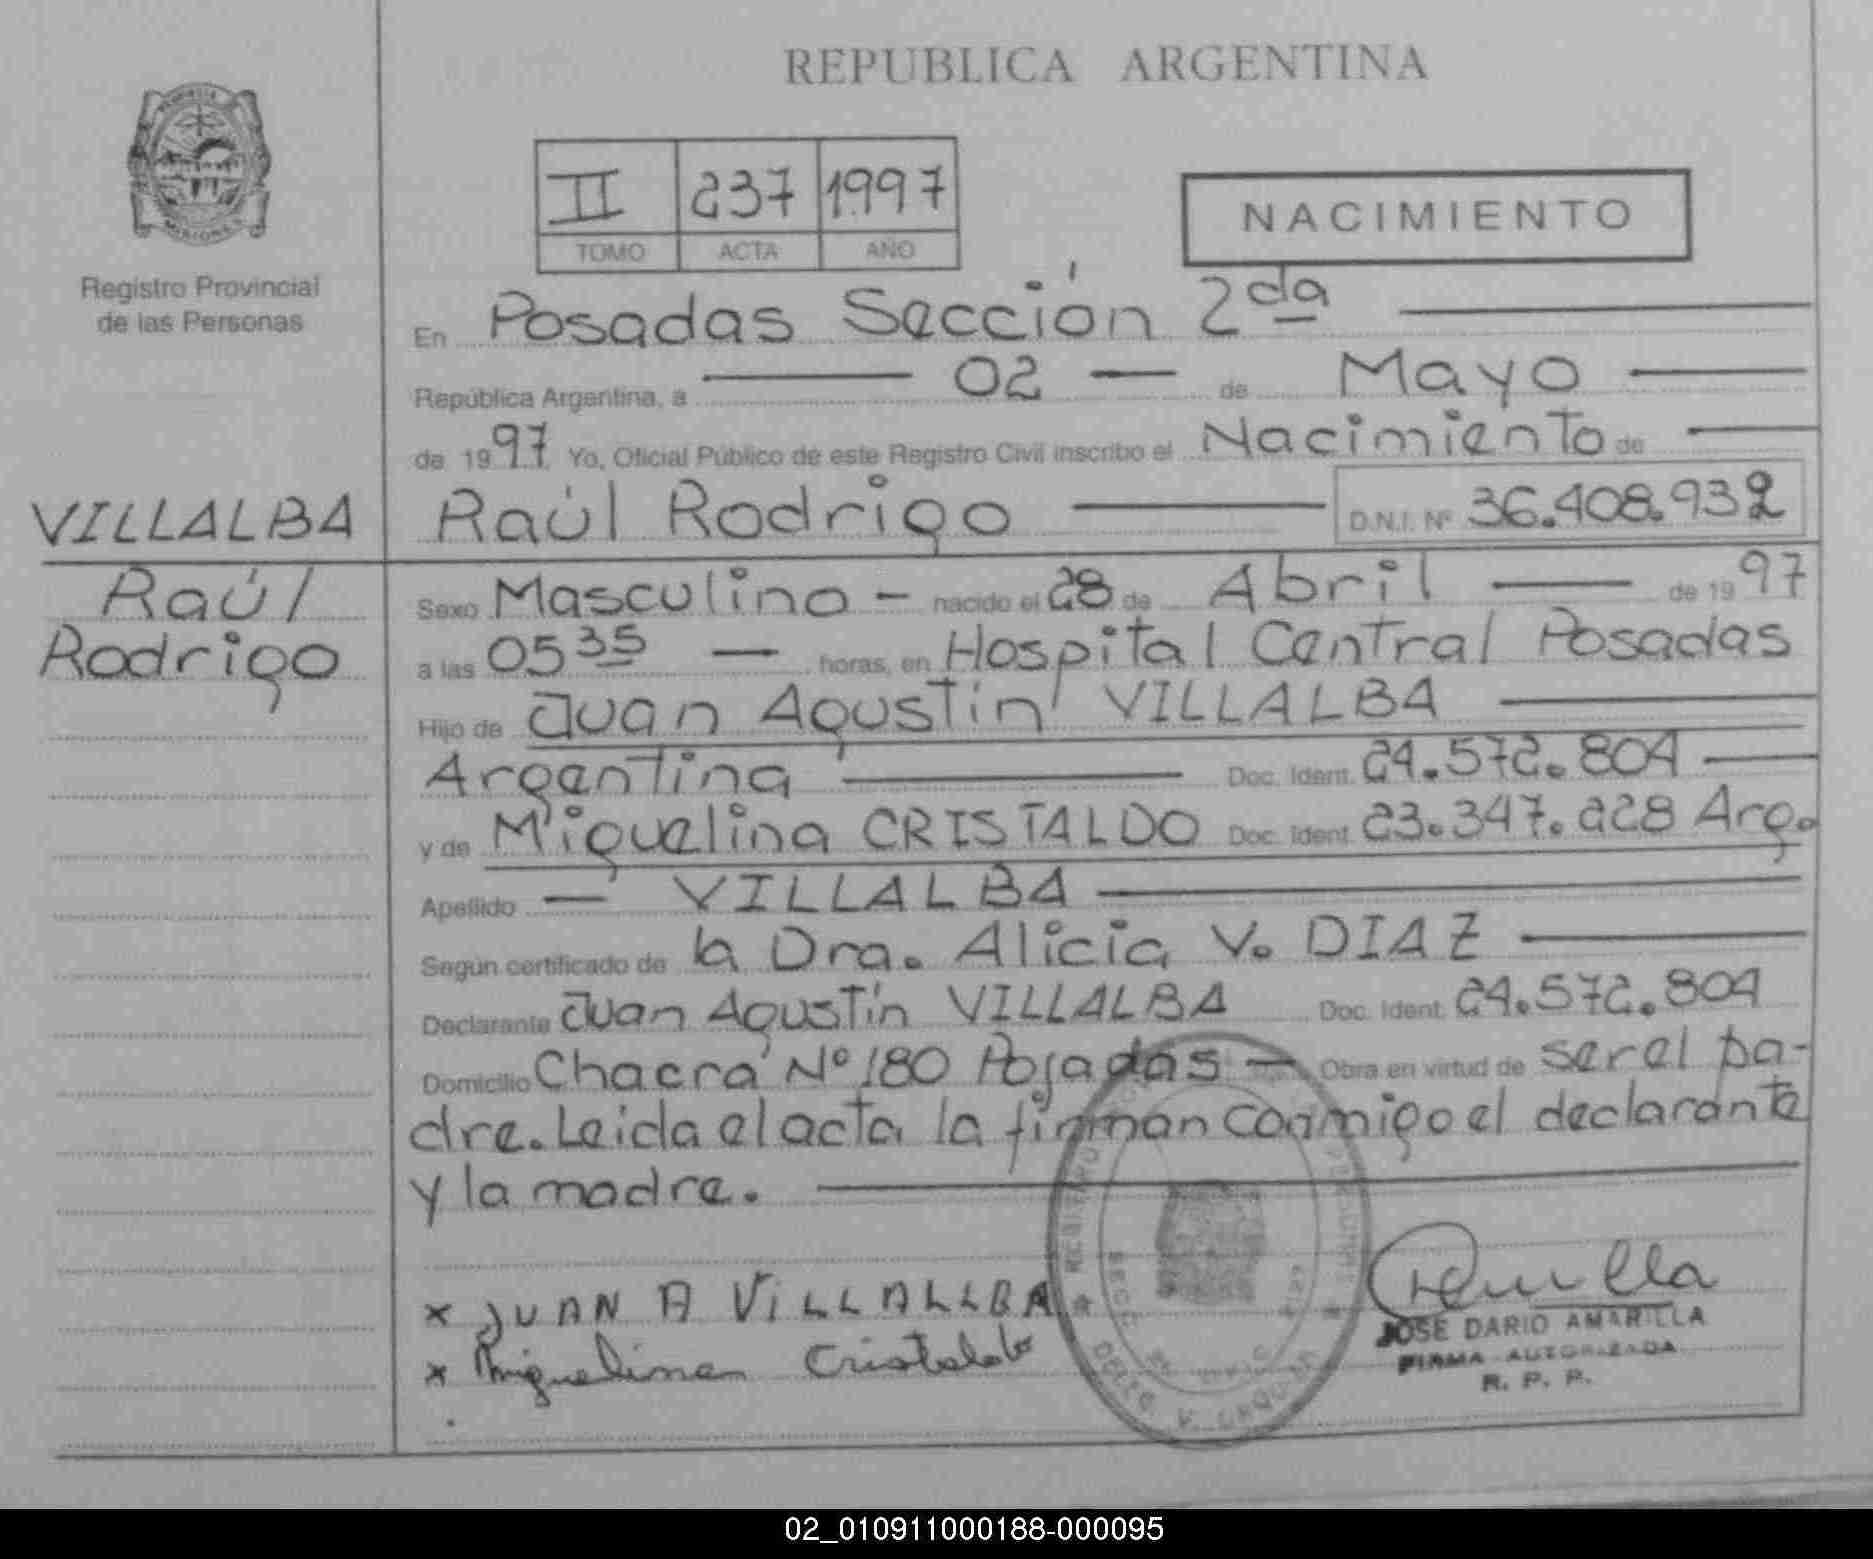 REPUBLICA ARGENTINA
II 237 1997
TOMO ACTA AÑO
NACIMIENTO
Registro Provincial
de las Personas
En Posadas Sección 2da
República Argentina, a 02 de Mayo
de 1997 Yo, Oficial Público de este Registro Civil inscribo el Nacimiento de
VILLALBA Raúl Rodrigo D.N.I. Nº 36.408.932
Raúl
Rodrigo
Sexo Masculino - nacido el 28 de Abril de 1997
a las 05 35 horas, en Hospital Central Posadas
Hijo de Juan Agustín VILLALBA
Argentina Doc. Ident. 24.572.804
y de Miguelina CRISTALDO Doc. Ident. 23.347.228 Arg.
Apellido VILLALBA
Según certificado de la Dra. Alicia V. DIAZ
Declarante Juan Agustín VILLALBA Doc. Ident. 24.572.804
Domicilio Chacra Nº 180 Posadas Obra en virtud de ser el pa-
dre. Leida el acta la firman conmigo el declarante
y la madre.
x JUAN A VILLALLBA
x Miguelina Cristaldo
JOSE DARIO AMARILLA
FIRMA AUTORIZADA
R. P. P.
02_010911000188-000095